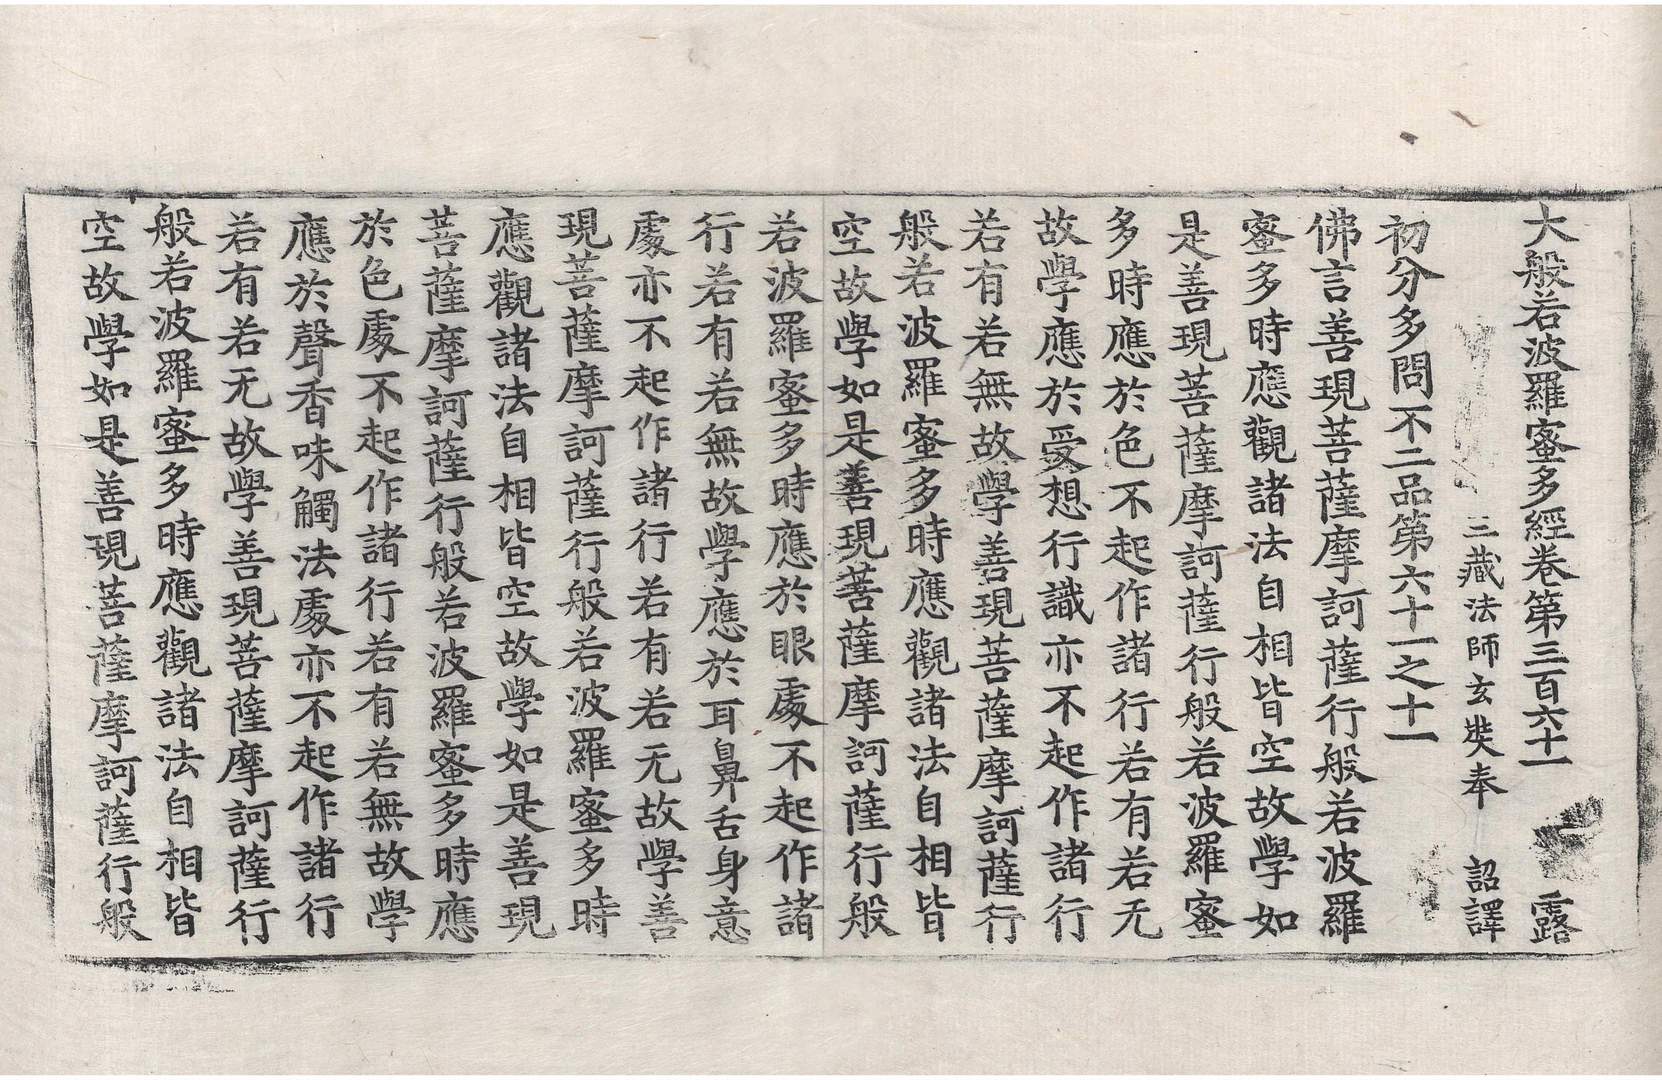 大般若波羅蜜多經卷第三百六十一 露
三藏法師玄奘奉 詔譯
初分多問不二品第六十一之十一
佛言善現菩薩摩訶薩行般若波羅
蜜多時應觀諸法自相皆空故學如
是善現菩薩摩訶薩行般若波羅蜜
多時應於色不起作諸行若有若无
故學應於受想行識亦不起作諸行
若有若無故學善現菩薩摩訶薩行
般若波羅蜜多時應觀諸法自相皆
空故學如是善現菩薩摩訶薩行般
若波羅蜜多時應於眼處不起作諸
行若有若無故學應於耳鼻舌身意
處亦不起作諸行若有若无故學善
現菩薩摩訶薩行般若波羅蜜多時
應觀諸法自相皆空故學如是善現
菩薩摩訶薩行般若波羅蜜多時應
於色處不起作諸行若有若無故學
應於聲香味觸法處亦不起作諸行
若有若无故學善現菩薩摩訶薩行
般若波羅蜜多時應觀諸法自相皆
空故學如是善現菩薩摩訶薩行般